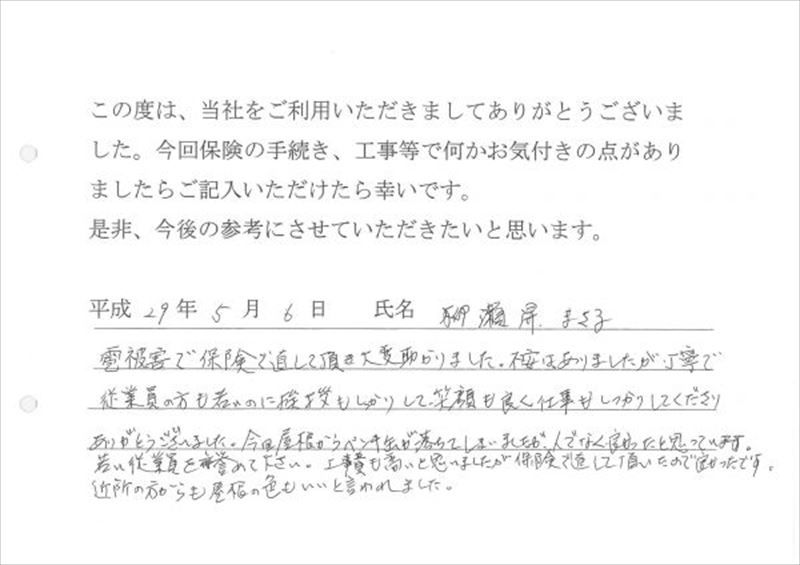 この度は、当社をご利用いただきましてありがとうございま
した。今回保険の手続き、工事等で何かお気付きの点があり
ましたらご記入いただけたら幸いです。
是非、今後の参考にさせていただきたいと思います。
平成 29 年 5 月 6 日 氏名 柳瀬 昇 まさ子
雹被害で保険で直して頂き大変助かりました。不安はありましたが丁寧で
従業員の方も若いのに挨拶もしっかりして、笑顔も良く仕事もしっかりしてくださり
ありがとうございました。今回屋根からペンキ缶が落ちてしまいましたが、人でなく良かったと思っています。
若い従業員を誉めて下さい。工事費も高いと思いましたが保険で直して頂いたので良かったです。
近所の方からも屋根の色もいいと言われました。